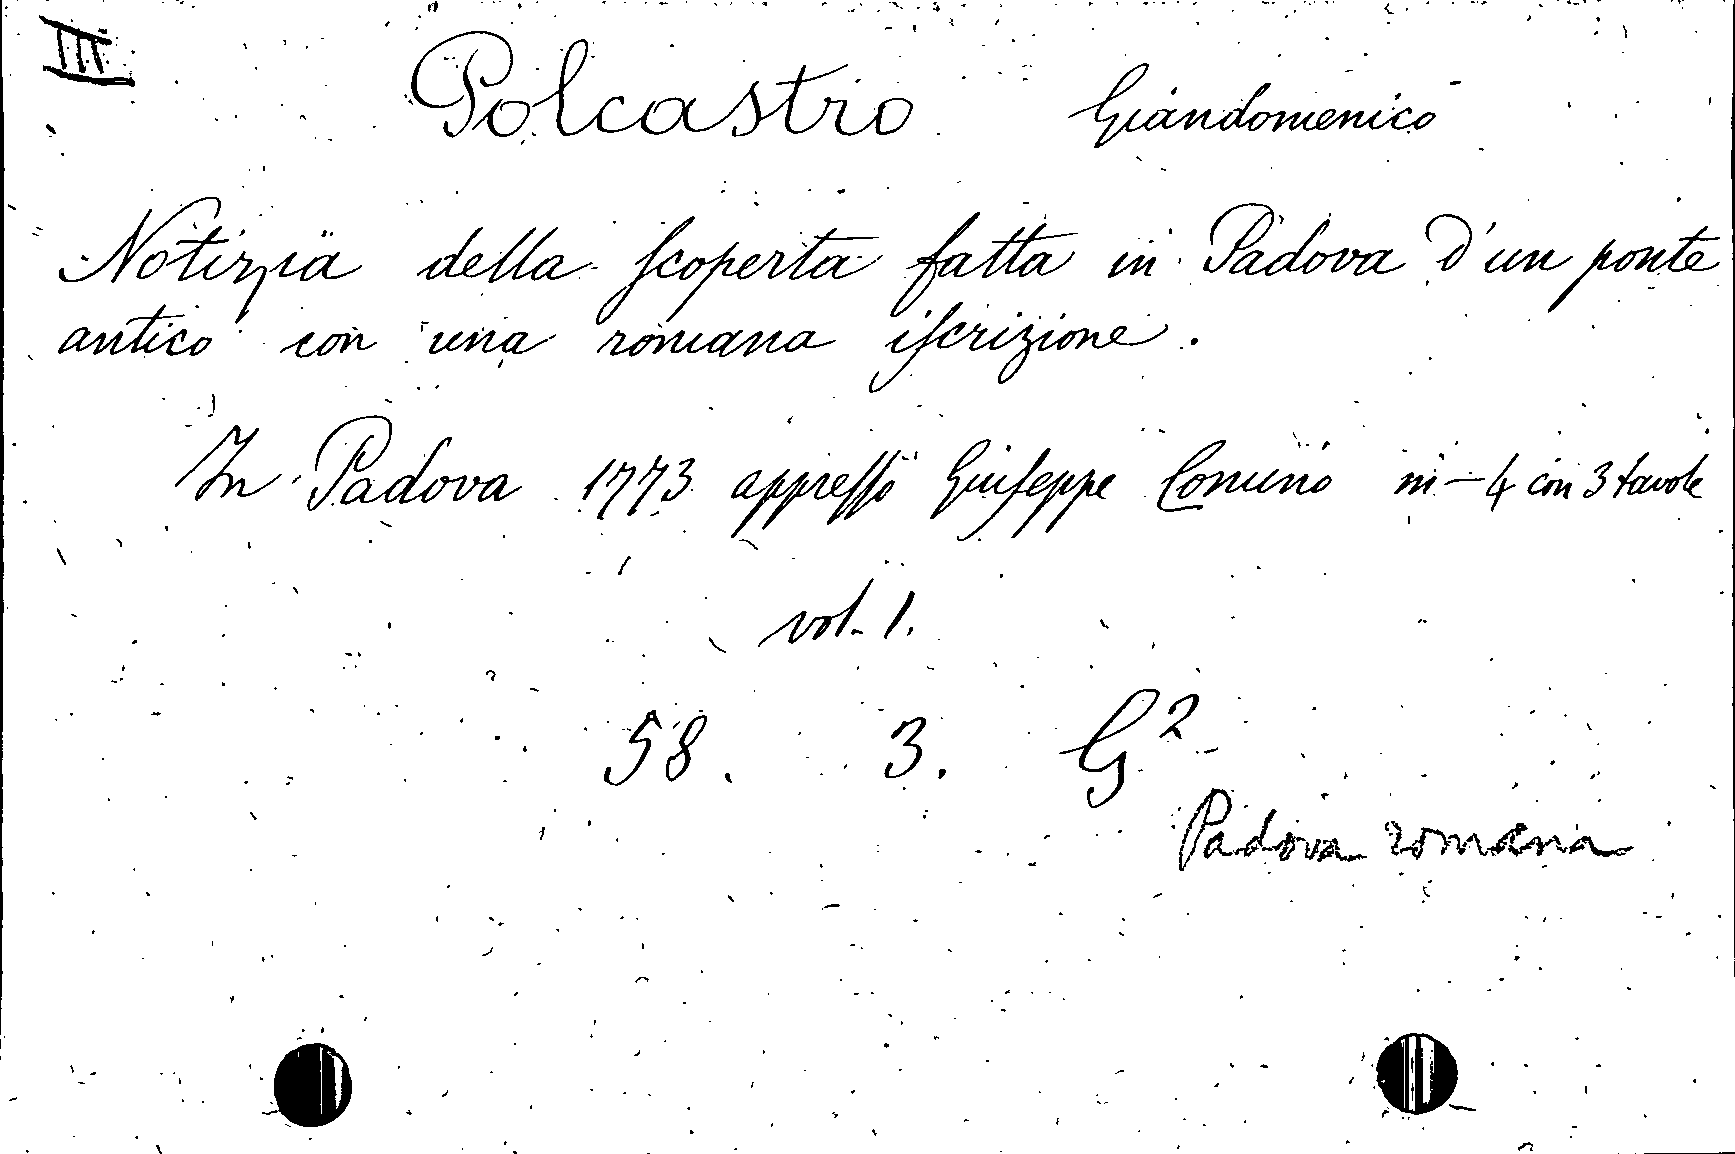 III
Polcastro Giandomenico
Notizia della ſcoperta fatta in Padova d'un ponte
antico con una romana iſcrizione.
In Padova 1773 appreſſo Giuſeppe Comino in-4 con 3 tavole
vol. 1.
58. 3. G²
Padova romana